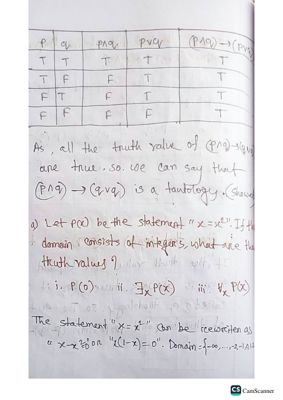 P q p∧q p∨q (p∧q)→(p∨q)
T T T T T
T F F T T
F T F T T
F F F F T
As, all the truth value of (p∧q)→(q∨q)
are true. so. we can say that
(p∧q) → (q∨q) is a tautology. (showed
a) Let P(x) be the statement "x=x²". If the
domain consists of integers, what are the
truth values?
i. P(0) ii. ∃x P(x) iii. ∀x P(x)
The statement "x = x²" can be rewritten as
"x-x²=0" or "x(1-x)=0". Domain={-∞,...,-2,-1,0,1,2
CS CamScanner